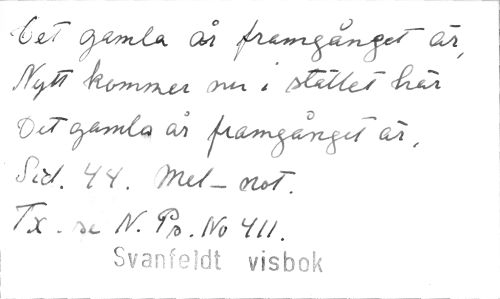 Det gamla år framgånget är,
Nytt kommer nu i stället här
Det gamla år framgånget är,
Sid. 44. Mel-not.
Tx. se N. Ps. No 411.
Svanfeldt visbok